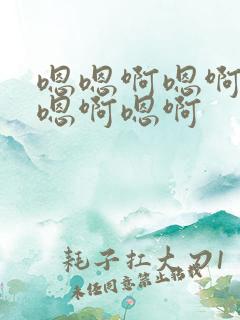 嗯嗯啊嗯啊
嗯啊嗯啊
耗子扛大刀1
未经同意禁止转载